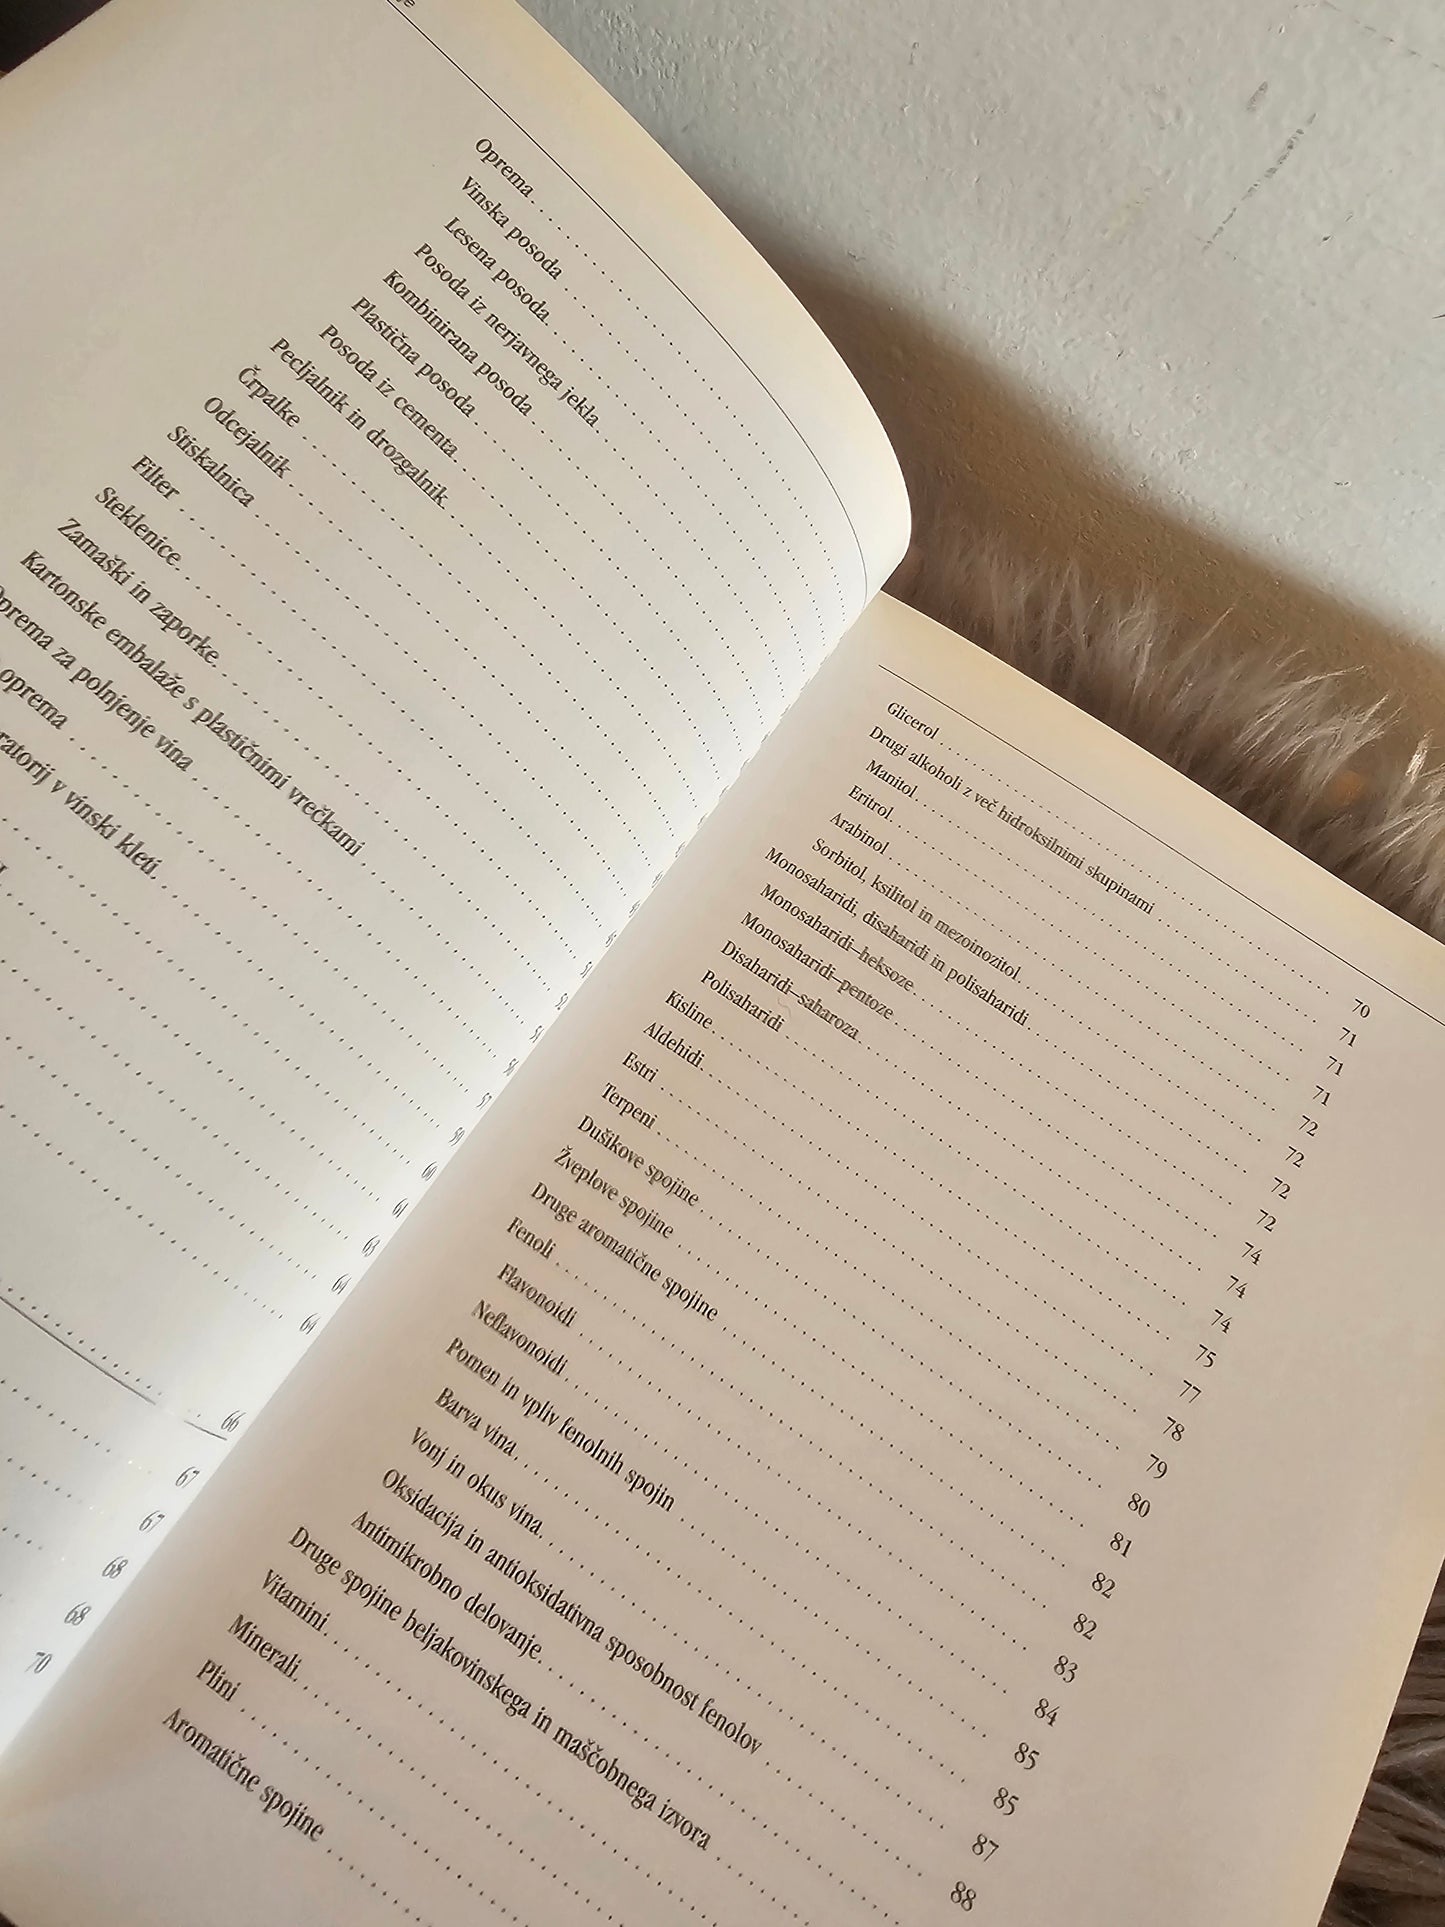 Oprema
Vinska posoda
Lesena posoda
Posoda iz nerjavnega jekla
Kombinirana posoda
Plastična posoda
Posoda iz cementa
Pecljalnik in drozgalnik
Črpalke
Odcejalnik
Stiskalnica
Filter
Steklenice
Zamaški in zaporke
Kartonske embalaže s plastičnimi vrečkami
Oprema za polnjenje vina
oprema
v vinski kleti
57
59
60
61
63
64
64
66
67
67
68
68
70
Glicerol 70
Drugi alkoholi z več hidroksilnimi skupinami 71
Manitol 71
Eritrol 71
Arabinol 72
Sorbitol, ksilitol in mezoinozitol 72
Monosaharidi, disaharidi in polisaharidi 72
Monosaharidi–heksoze 72
Monosaharidi–pentoze 74
Disaharidi–saharoza 74
Polisaharidi 74
Kisline 75
Aldehidi 77
Estri 78
Terpeni 79
Dušikove spojine 80
Žveplove spojine 81
Druge aromatične spojine 82
Fenoli 82
Flavonoidi 83
Neflavonoidi 84
Pomen in vpliv fenolnih spojin 85
Barva vina 85
Vonj in okus vina 87
Oksidacija in antioksidativna sposobnost fenolov 88
Antimikrobno delovanje
Druge spojine beljakovinskega in maščobnega izvora
Vitamini
Minerali
Plini
Aromatične spojine